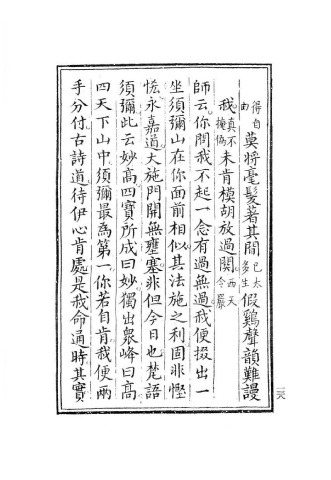 得自由莫將毫髮著其間已太多生假雞聲韻難謾
我真不掩偽未肯模胡放過關西天令嚴
師云你問我不起一念有過無過我便掇出一
坐須彌山在你面前相似其法施之利固非慳
悋永嘉道大施門開無壅塞非但今日也梵語
須彌此云妙高四寶所成曰妙獨出眾峰曰高
四天下山中須彌最為第一你若自肯我便兩
手分付古詩道待伊心肯處是我命通時其實